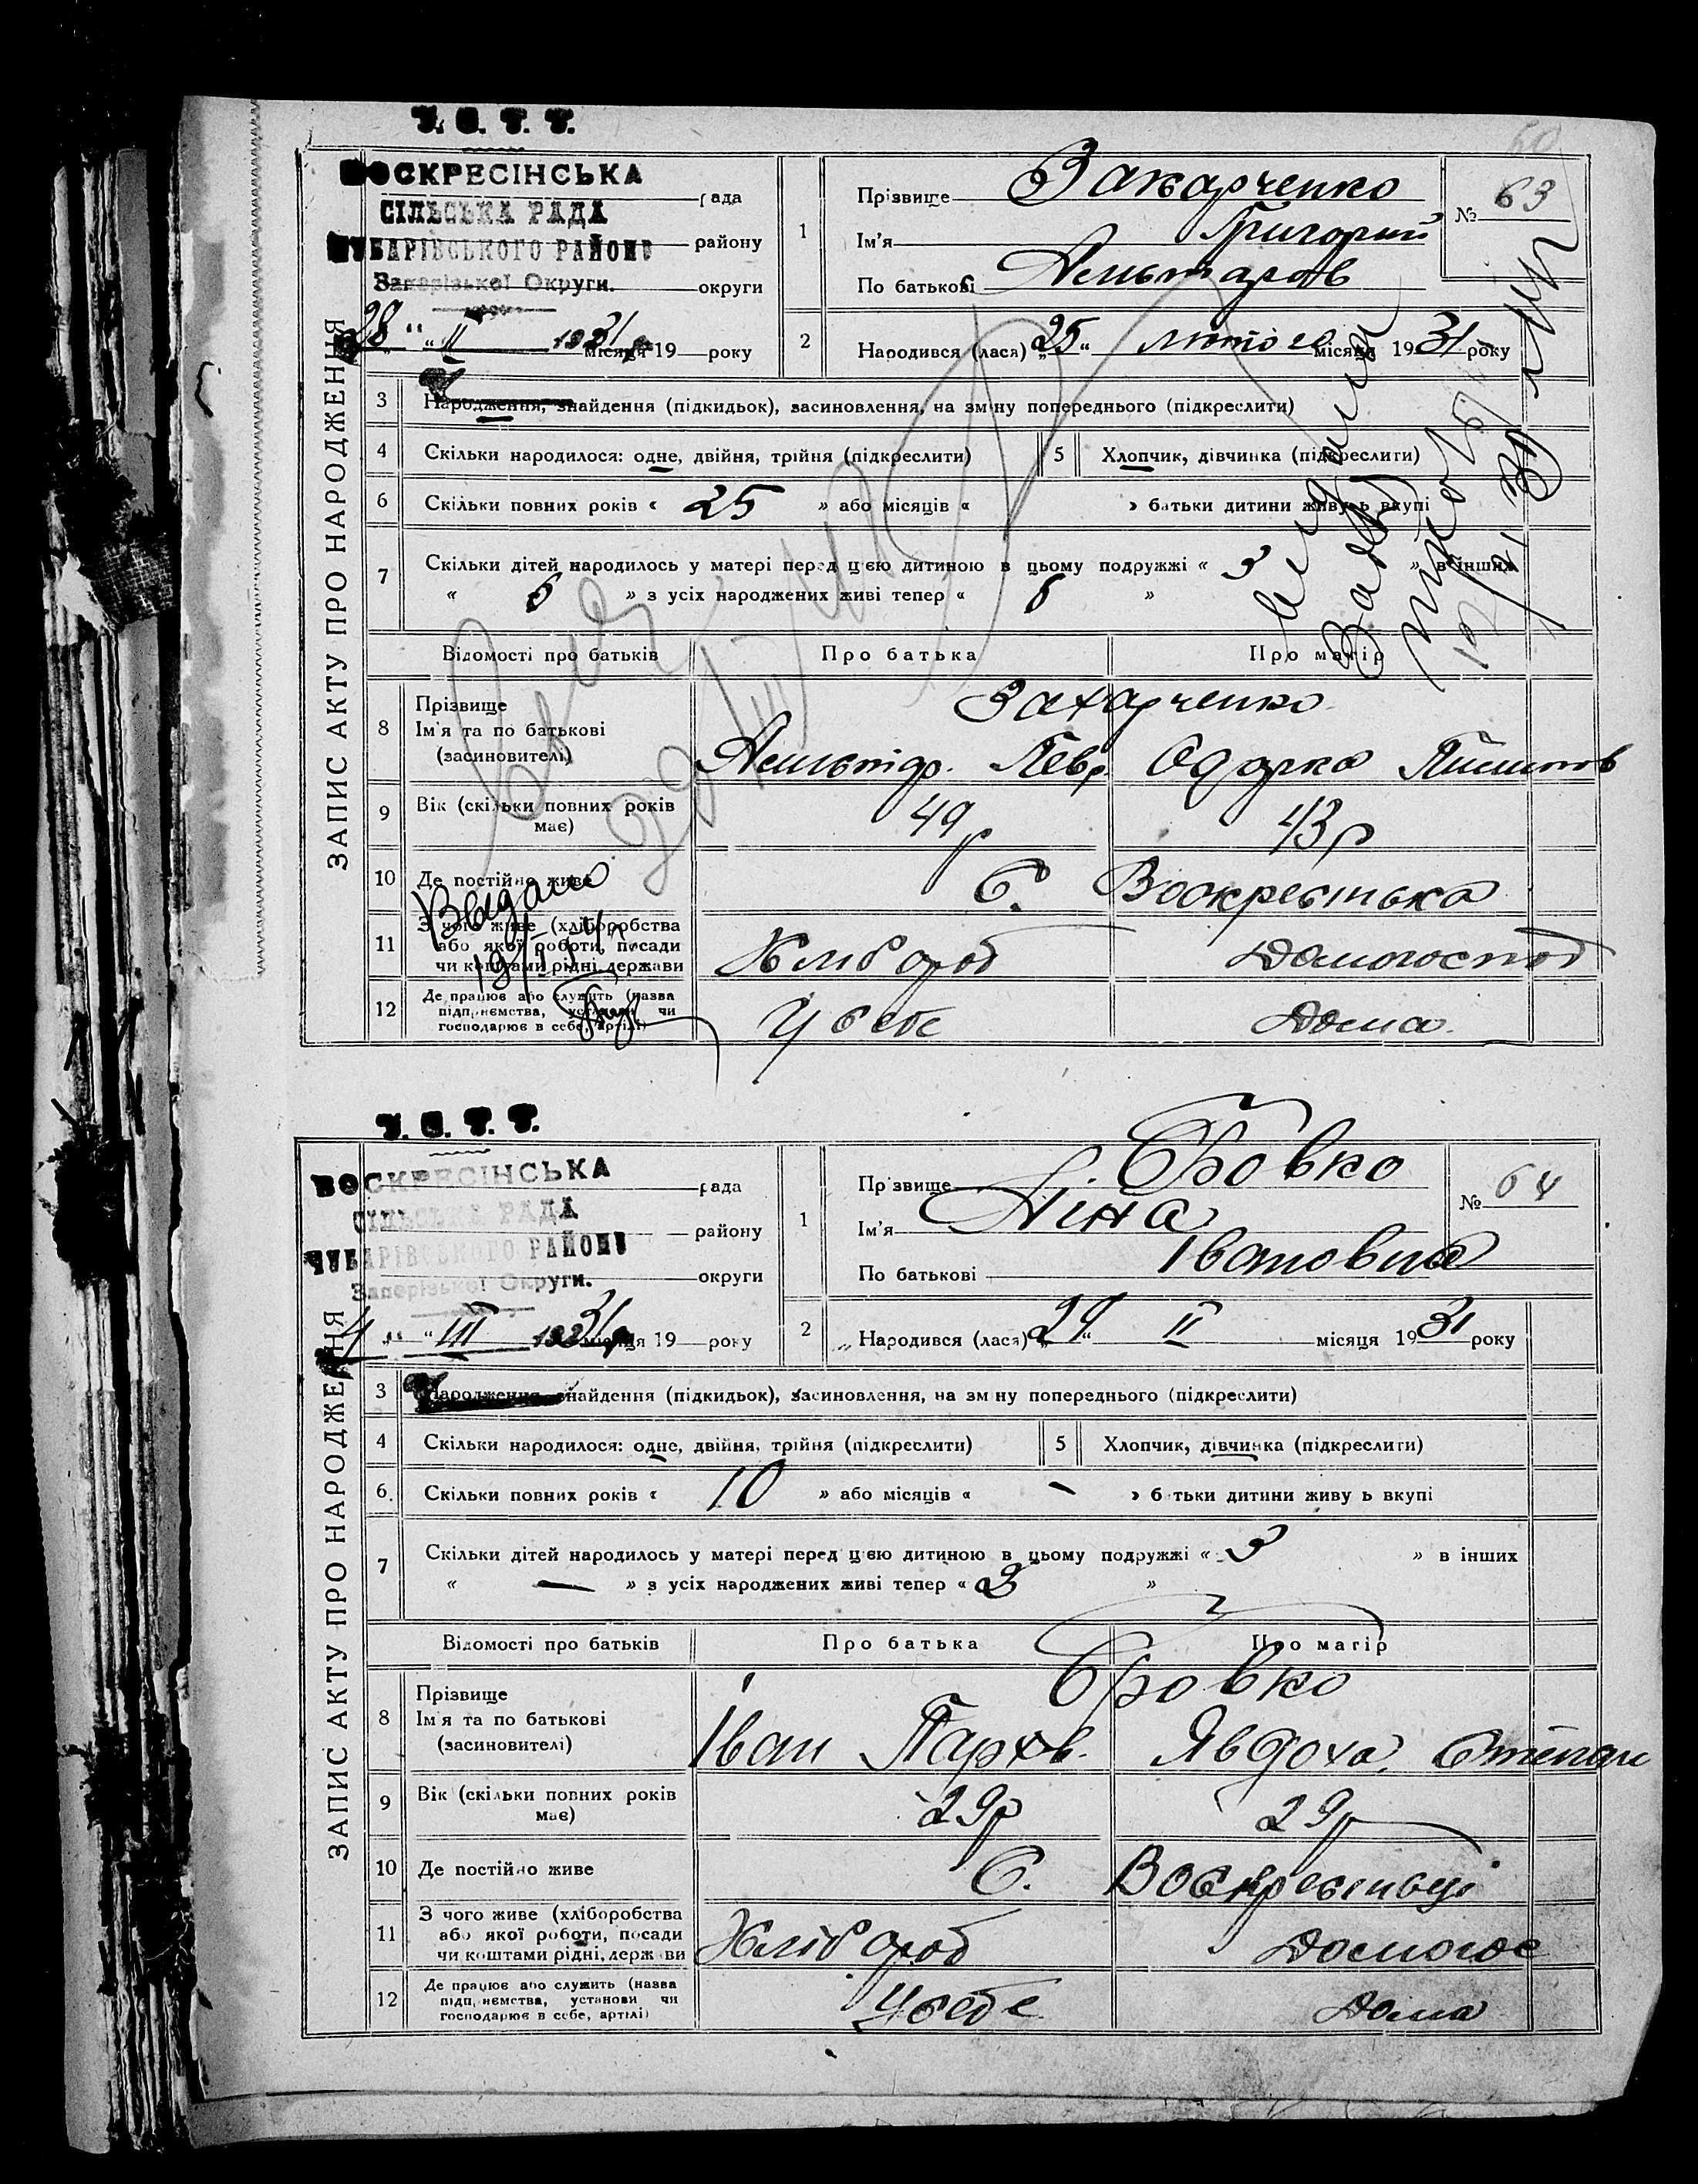 60
У. С. Р. Р.
ВОСКРЕСІНСЬКА рада
СІЛЬСЬКА РАДА
ЧУБАРІВСЬКОГО РАЙОНУ району
Запорізької Округи. округи
28 " " II 1931 р місяця 19 року
ЗАПИС АКТУ ПРО НАРОДЖЕННЯ
1 Прізвище Захарченко
Ім'я Григорий
По батькові
№ 63
2 Народився (лася) „25" лютого місяця 1931 року
3 Народження, знайдення (підкидьок), засиновлення, на зміну попереднього (підкреслити)
4 Скільки народилося: одне, двійня, трійня (підкреслити) 5 Хлопчик, дівчинка (підкреслити)
6 Скільки повних років « 25 » або місяців « » батьки дитини живуть вкупі
7 Скільки дітей народилось у матері перед цією дитиною в цьому подружжі « 3 » в інших
« 6 » з усіх народжених живі тепер « 6 »
Відомості про батьків Про батька Про матір
8 Прізвище Захарченко
Ім'я та по батькові Одарка
(засновителі)
9 Вік (скільки повних років має) 49 р 43 р
10 Де постійно живе С. Воскресенька
Видано
11 З чого живе (хліборобства або якої роботи, посади чи коштами рідні, держави Хлібороб Домогоспод
12 Де працює або служить (назва підприємства, установи чи господарює в себе, артілі) У себе Дома
У. С. Р. Р.
ВОСКРЕСІНСЬКА рада
СІЛЬСЬКА РАДА
ЧУБАРІВСЬКОГО РАЙОНУ району
Запорізької Округи. округи
4 " " III 1931 р місяця 19 року
ЗАПИС АКТУ ПРО НАРОДЖЕННЯ
1 Прізвище Бровко
Ім'я Ніна
По батькові Івановна
№ 64
2 „ Народився (лася) „ " II місяця 1931 року
3 Народження, знайдення (підкидьок), засиновлення, на зміну попереднього (підкреслити)
4 Скільки народилося: одне, двійня, трійня (підкреслити) 5 Хлопчик, дівчинка (підкреслити)
6 Скільки повних років « 10 » або місяців « - » батьки дитини живуть вкупі
7 Скільки дітей народилось у матері перед цією дитиною в цьому подружжі « 3 » в інших
« — » з усіх народжених живі тепер « 3 »
Відомості про батьків Про батька Про матір
8 Прізвище Бровко
Ім'я та по батькові Іван Пархов. Явдоха Степан
(засиновителі)
9 Вік (скільки повних років має) 29 р 29 р
10 Де постійно живе С. Воскресеньці
11 З чого живе (хліборобства або якої роботи, посади чи коштами рідні, держави Хлібороб Домогос
12 Де працює або служить (назва підприємства, установи чи господарює в себе, артілі) У себе Дома